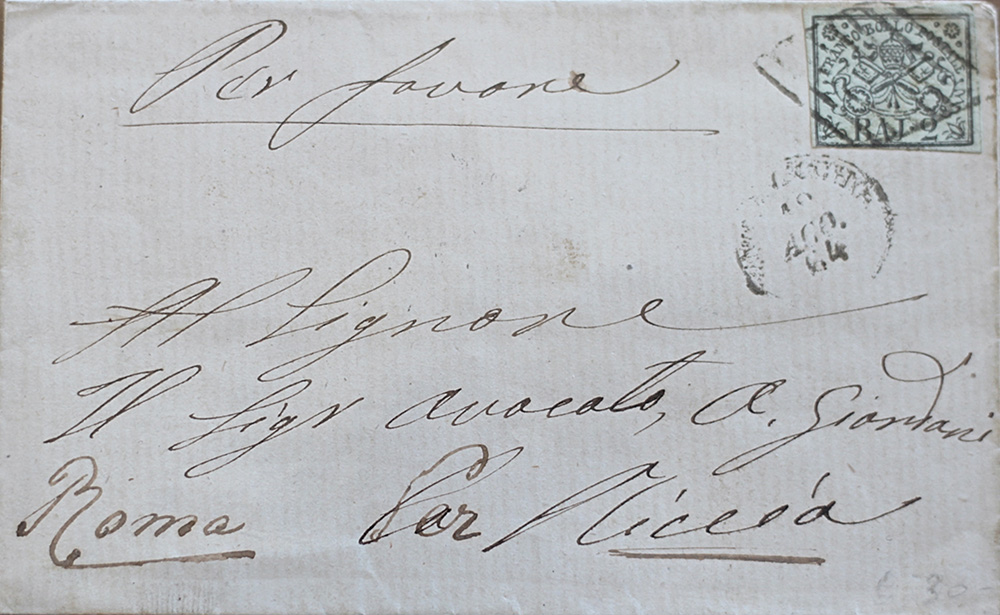 Per favore
FRANCO BOLLO POSTALE
BAJ 2
AGO.
64
Al Signore
Il Sigr avocato, A. Giordani
Roma Per